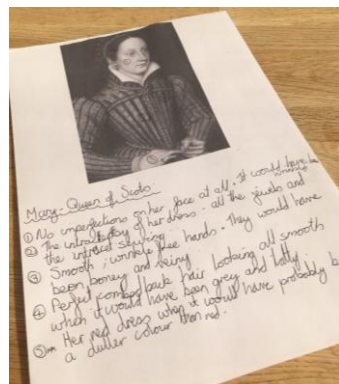 Mary - Queen of Scots
① No imperfections on her face at all. It would have been
② The intricacy of her dress. all the jewels and
the intricate sewing.
③ Smooth, wrinkle free hands. They would have
been boney and veiny
④ Perfect combed back hair looking all smooth
when it would have been grey and tatty.
⑤ Her red dress when it would have probably b
a duller colour than red.